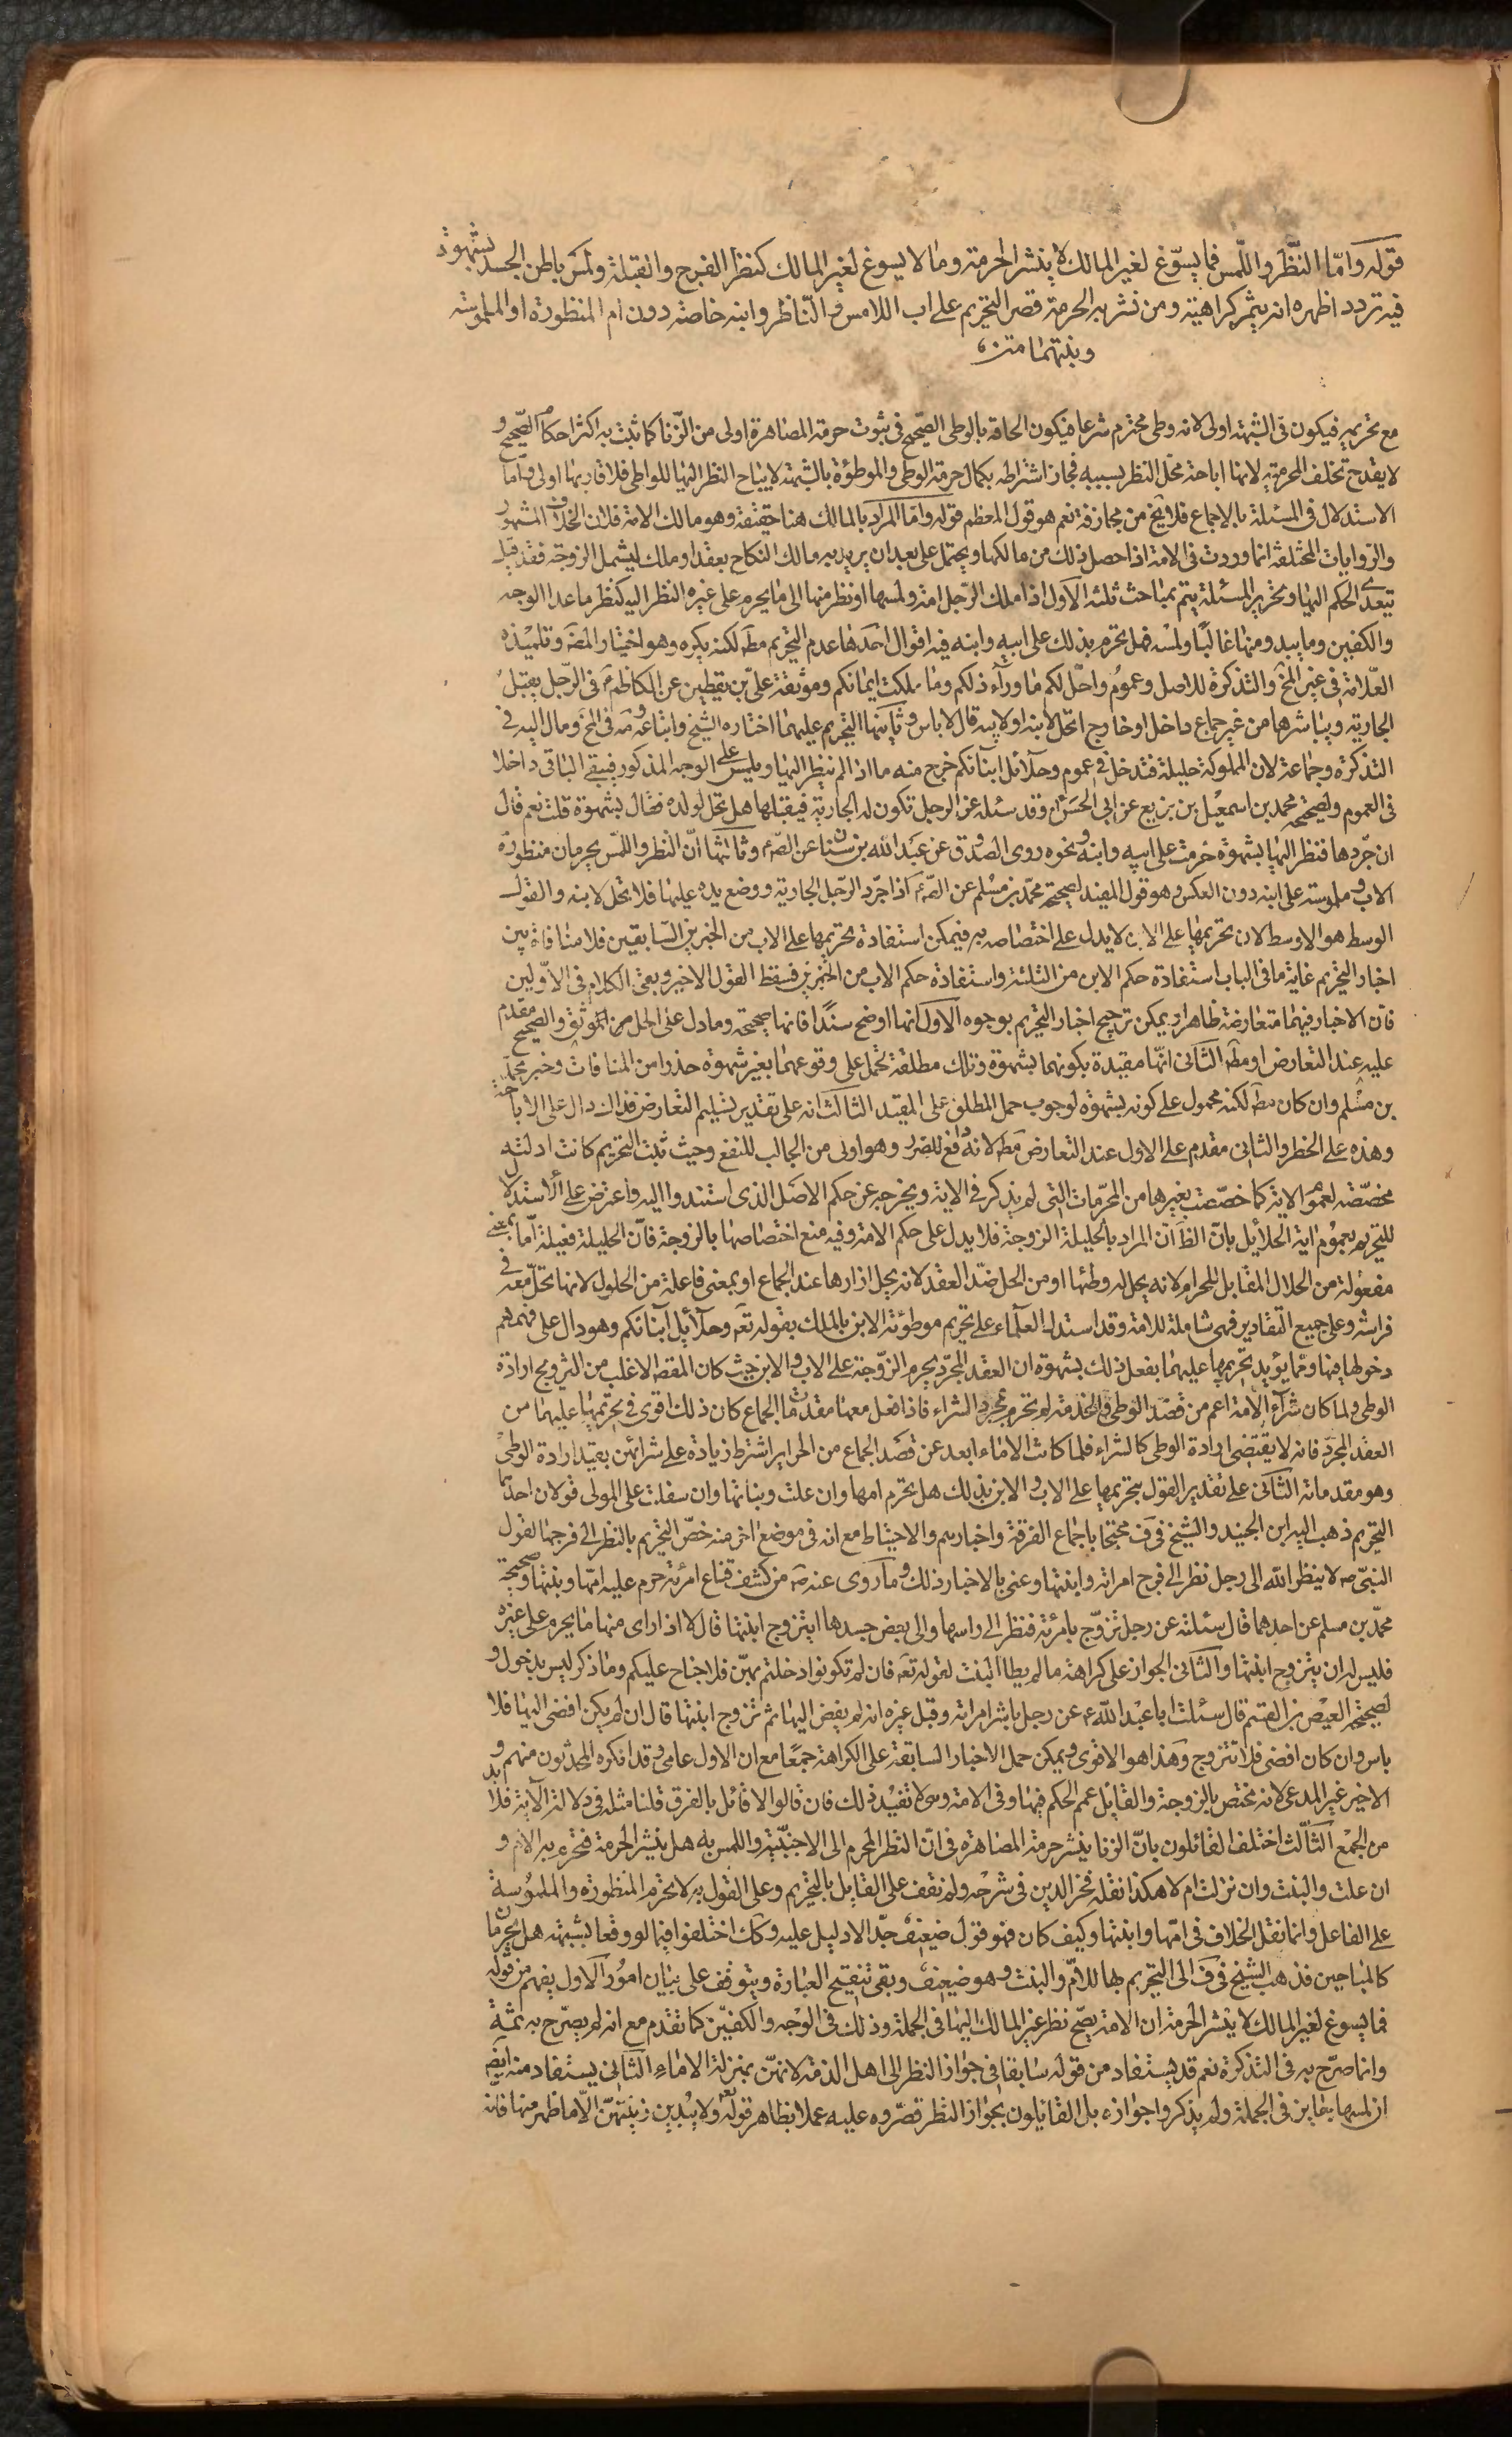 قوله وامّا النّظر واللّمس فما يسوّغ لغير المالك لا ينشر الحرمة وما لا يسوغ لغير المالك كنظر الفرج والقبلة ولمس باطن الجسد بشهوة
فيه تردد اظهره انه يثمر كراهية ومن نشر به الحرمة قصر التحريم على اب اللامس والنّاظر وابنه خاصة دون ام المنظورة او الملموسة
وبنتهما متن
مع تحريمه فيكون فى الشبهة اولى لانه وطى محترم شرعا فيكون الحاقه بالوطى الصّحيح فى ثبوت حرمة المصاهرة اولى من الزّنا كما ثبت به اكثر احكام الصّحيح و
لا يقدح تخلف المحرمية لانها اباحة محلّل النظر بسببه فجاز اشتراطه بكمال حرمة الوطى والموطؤة بالشبهة لا يباح النظر اليها للواطى فلاقاربها اولى وامّا
الاستدلال فى المسئلة بالاجماع فلا يخ من مجازفة نعم هو قول المعظم قوله وامّا المراد بالمالك هنا حقيقة وهو مالك الامة فلان الخلاف المشهور
والرّوايات المختلفة انما وردت فى الامة اذا حصل ذلك من مالكها ويحتمل على بعد ان يريد به مالك النكاح بعقد او ملك ليشمل الزوجة فقد قيل
بتعدّى الحكم اليها وتحرير المسئلة يتم بمباحث ثلثة الاول اذا ملك الرّجل امة ولمسها او نظر منها الى ما يحرم على غيره النظر اليه كنظر ما عدا الوجه
والكفين وما يبدو منها غالبًا ولمسه فهل يحرم بذلك على ابيه وابنه فيه اقوال احدها عدم التحريم مطه لكنه يكره وهو اختيار المصَ وتلميذه
العلّامة فى غير المخ والتذكرة للاصل وعموم واحلّ لكم ما ورآء ذلكم وما ملكت ايمانكم وموثقة علىّ بن يقطين عن الكاظم ع فى الرّجل يقبّل
الجارية ويباشرها من غير جماع داخل او خارج اتحلّ لابنه او لابيه قال لا باس وثانيها التحريم عليهما اختاره الشيخ واتباعه وفى المخ ومال اليه فى
التذكرة وجماعة لان المملوكة حليلة فتدخل فى عموم وحلآئل ابنآئكم خرج منه ما اذا لم ينظر اليها ويلمس على الوجه المذكور فيبقى الباقى داخلا
فى العموم ولصحيحة محمد بن اسمعيل بن بزيع عن ابى الحسن ع وقد سئله عن الرجل تكون له الجارية فيقبّلها هل تحلّ لولده فقال بشهوة قلت نعم قال
ان جرّدها فنظر اليها بشهوة حرمت على ابيه وابنه ونحوه روى الصدوق عن عبد الله بن سنان عن الصّ ع وثالثها انّ النظر واللمس يحرمان منظورة
الاب وملموسته على ابنه دون العكس وهو قول المفيد لصحيحة محمّد بن مسلم عن الصّ ع اذا جرّد الرّجل الجارية ووضع يده عليها فلا تحلّ لابنه والقول
الوسط هو الاوسط لان تحريمها على الابن لا يدل على اختصاصه به فيمكن استفادة تحريمها على الاب من الخبرين السّابقين فلا منافاة بين
اخبار التحريم غاية ما فى الباب استفادة حكم الابن من الثلثة واستفادة حكم الاب من الخبرين فسقط القول الاخير وبقى الكلام فى الاوّلين
فان الاخبار فيهما متعارضة ظاهرا ويمكن ترجيح اخبار التحريم بوجوه الاول انها اوضح سندًا فانها صحيحة وما دل على الحل من الموثق والصحيح مقدّم
عليه عند التعارض او مطَ الثانى انها مقيدة بكونهما بشهوة وتلك مطلقة تحمل على وقوعهما بغير شهوة حذرا من المنافات وخبر محمّد
بن مسلم وان كان مطَ لكنه محمول على كونه بشهوة لوجوب حمل المطلق على المقيّد الثالث انه على تقدير تسليم التعارض فذاك دال على الاباحة
وهذه على الحظر والثانى مقدم على الاول عند التعارض مطَ لانه دافع للضرر وهو اولى من الجالب للنفع وحيث ثبت التحريم كانت ادلته
مخصّصة لعموم الاية كما خصّصت بغيرها من المحرّمات التى لم يذكر فى الاية ويخرج به عن حكم الاصل الذى استندوا اليه واعترض على الاستدلال
للتحريم بعموم اية الحلآئل بانّ الظَ انّ المراد بالحليلة الزوجة فلا يدل على حكم الامة وفيه منع اختصاصها بالزوجة فانّ الحليلة فعيلة امّا بمعنى
مفعولة من الحلال المقابل للحرام لانه يحل له وطئها او من الحل ضدّ العقد لانه يحل ازارها عند الجماع او بمعنى فاعلة من الحلول لانها تحلّ معه فى
فراشه وعلى جميع التقادير فهى شاملة للامة وقد استدل العلمآء على تحريم موطؤة الابن بالملك بقوله تعَ وحلآئل ابنآئكم وهو دال على فهمهم
دخولها فيها وممّا يؤيد تحريمها عليهما بفعل ذلك بشهوة ان العقد المجرّد يحرم الزّوجة على الاب والابن حيث كان المقصَ الاغلب من التزويج ارادة
الوطى ولما كان شرآء الامة اعم من قصد الوطى والخدمة لم تحرم بمجرد الشراء فاذا فعل معها مقدمات الجماع كان ذلك اقوى فى تحريمها عليهما من
العقد المجرّد فانه لا يقتضى ارادة الوطى كالشراء فلما كانت الاماء ابعد عن قصد الجماع من الحراير اشترط زيادة على شرائهن بقيد ارادة الوطى
وهو مقدماته الثانى على تقدير القول بتحريمها على الاب والابن بذلك هل يحرم امها وان علت وبناتها وان سفلت على المولى قولان احدهما
التحريم ذهب اليه ابن الجنيد والشيخ فى فَ محتجّا باجماع الفرقة واخبارهم والاحتياط مع انه فى موضع اخر منه خصّ التحريم بالنظر الى فرجها لقول
النبىّ ص لا ينظر الله الى رجل نظر الى فرج امراة وابنتها وعنى بالاخبار ذلك وما روى عنه ص من كشف قناع امرئة حرم عليه امّها وبنتها وصحيحة
محمّد بن مسلم عن احدهما قال سئلته عن رجل تزوّج بامرئة فنظر الى راسها والى بعض جسدها ايتزوج ابنتها قال لا اذا راى منها ما يحرم على غيره
فليس له ان يتزوج ابنتها والثانى الجواز على كراهة ما لم يطا البنت لقوله تعَ فان لم تكونوا دخلتم بهنّ فلا جناح عليكم وما ذكر ليس بدخول و
لصحيحة العيص بن القسم قال سئلت ابا عبد الله ع عن رجل باشر امراته وقبّل غيره انه لم يفض اليها ثم تزوج ابنتها قال ان لم يكن افضى اليها فلا
باس وان كان افضى فلا يتزوج وهذا هو الاقوى ويمكن حمل الاخبار السابقة على الكراهة جمعًا مع ان الاول عامى وقد انكره المحدثون منهم و
الاخير غير المدعى لانه مختص بالزوجة والقايل عمم الحكم فيها وفى الامة وهى لا تفيد ذلك فان قالوا لا قائل بالفرق قلنا مثله فى دلالة الآية فلا بد
من الجمع الثالث اختلف القائلون بانّ الزنا ينشر حرمة المصاهرة فى انّ النظر المحرم الى الاجنبيّة واللمس به هل ينشر الحرمة فتحرم به الام و
ان علت والبنت وان نزلت ام لا هكذا نقله فخر الدين فى شرحه ولم نقف على القايل بالتحريم وعلى القول به لا تحرم المنظورة والملموسة
على الفاعل وانما نقل الخلاف فى امّها وابنتها وكيف كان فهو قول ضعيف جدّا لا دليل عليه وكك اختلفوا فيما لو وقعا بشبهة هل يحرمان
كالمباحين فذهب الشيخ فى فَ الى التحريم بها للامّ والبنت وهو ضعيف وبقى تنقيح العبارة ويتوقف على بيان امور الاول يفهم من قوله
فما يسوغ لغير المالك لا ينشر الحرمة ان الامة يصّح نظر غير المالك اليها فى الجملة وذلك فى الوجه والكفين كما تقدم مع انه لم يصرّح به ثمّة
وانما صرّح به فى التذكرة نعم قد يستفاد من قوله سابقا فى جواز النظر الى اهل الذمة لانهنّ بمنزلة الاماء الثانى يستفاد منه ايضَ
ان لمسها جايز فى الجملة ولم يذكروا جوازه بل القائلون بجواز النظر قصّروه عليه عملا بظاهر قوله تع ولا يبدين زينتهنّ الّا ما ظهر منها فانه